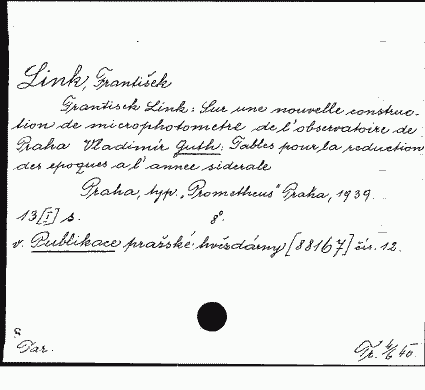 Link, František
František Link: Sur une nouvelle construc-
tion de microphotometre de l'observatoire de
Praha Vladimír Guth: Tables pour la reduction
des epoques a l'annee siderale
Praha, typ. „Prometheus" Praha, 1939.
13 [I] s. 8°.
v. Publikace pražské hvězdárny [88167] čís. 12.
S
Tar.
Tř. 4/6 40.